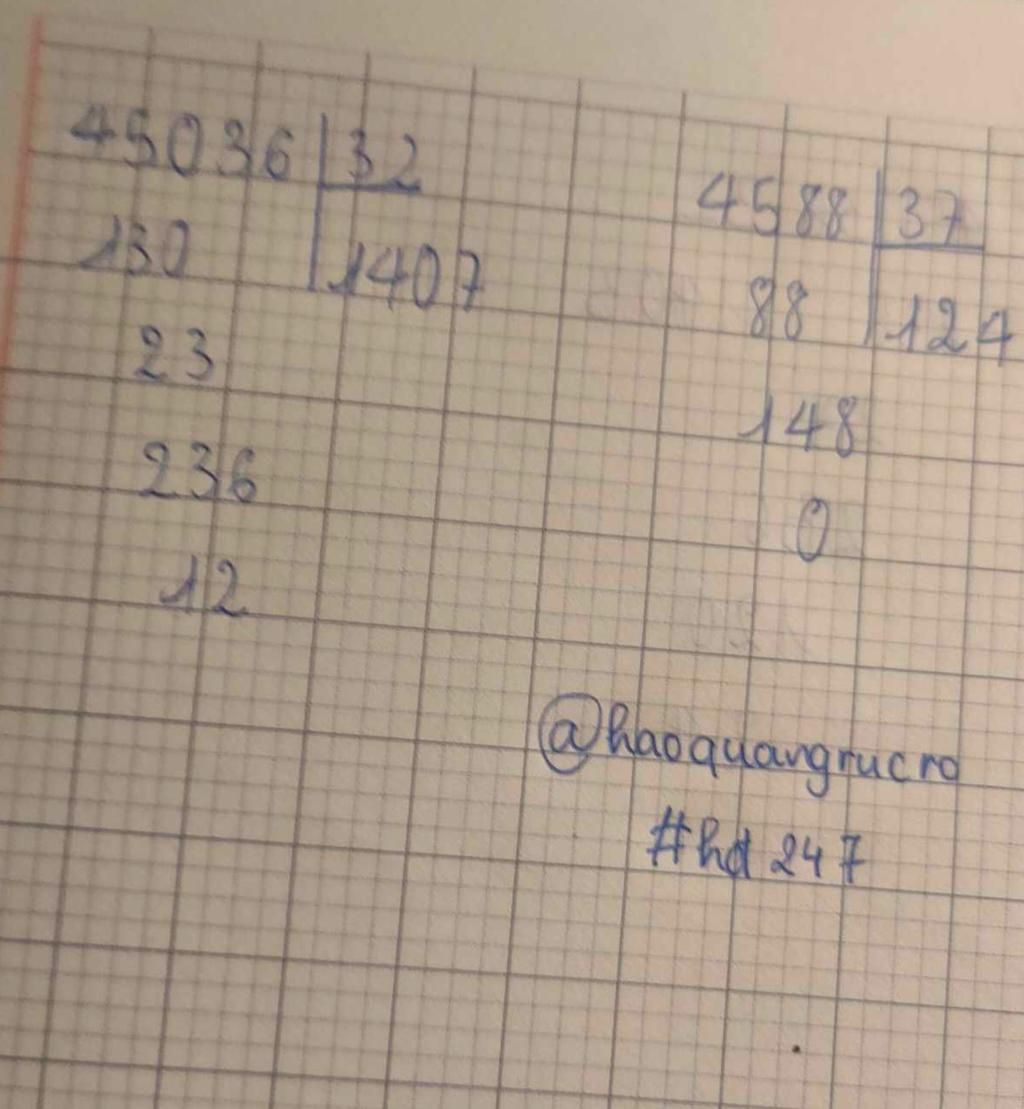 45036 32
130 1407
23
236
12
4588 37
88 124
148
0
@haoquangrucro
#hd 247